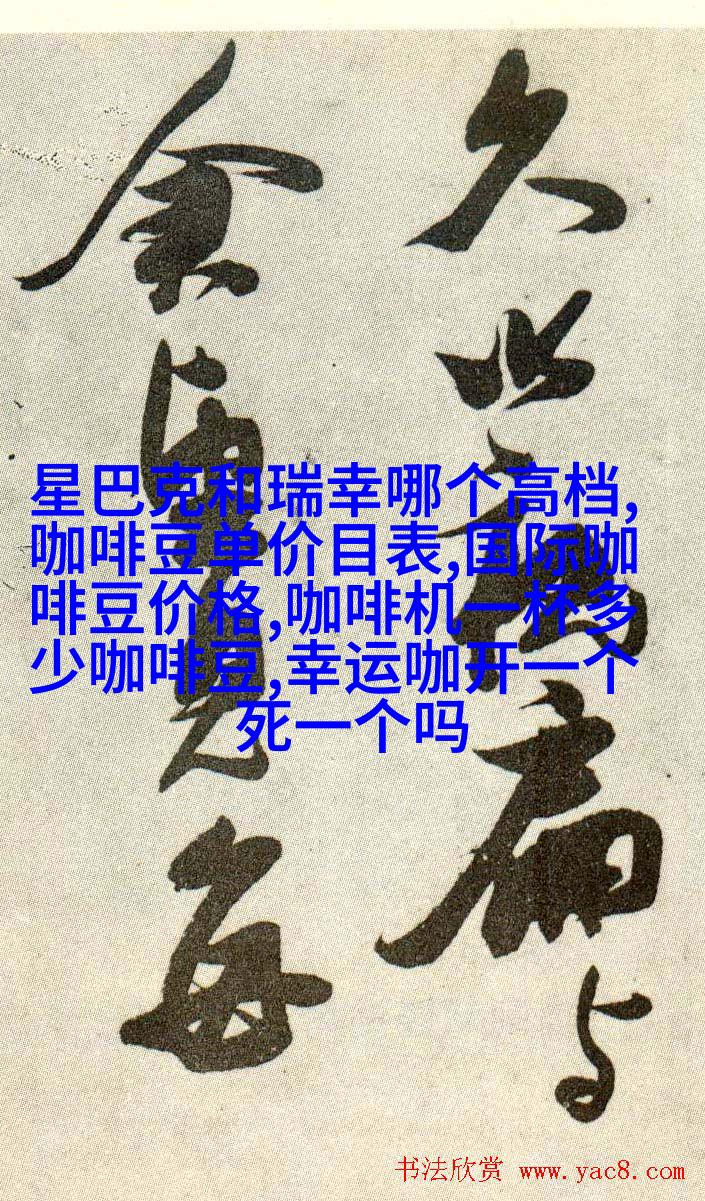 久扁与
見每
星巴克和瑞幸哪个高档,
咖啡豆单价目表,国际咖
啡豆价格,咖啡机一杯多
少咖啡豆,幸运咖开一个
死一个吗
书法欣赏 www.yac8.com